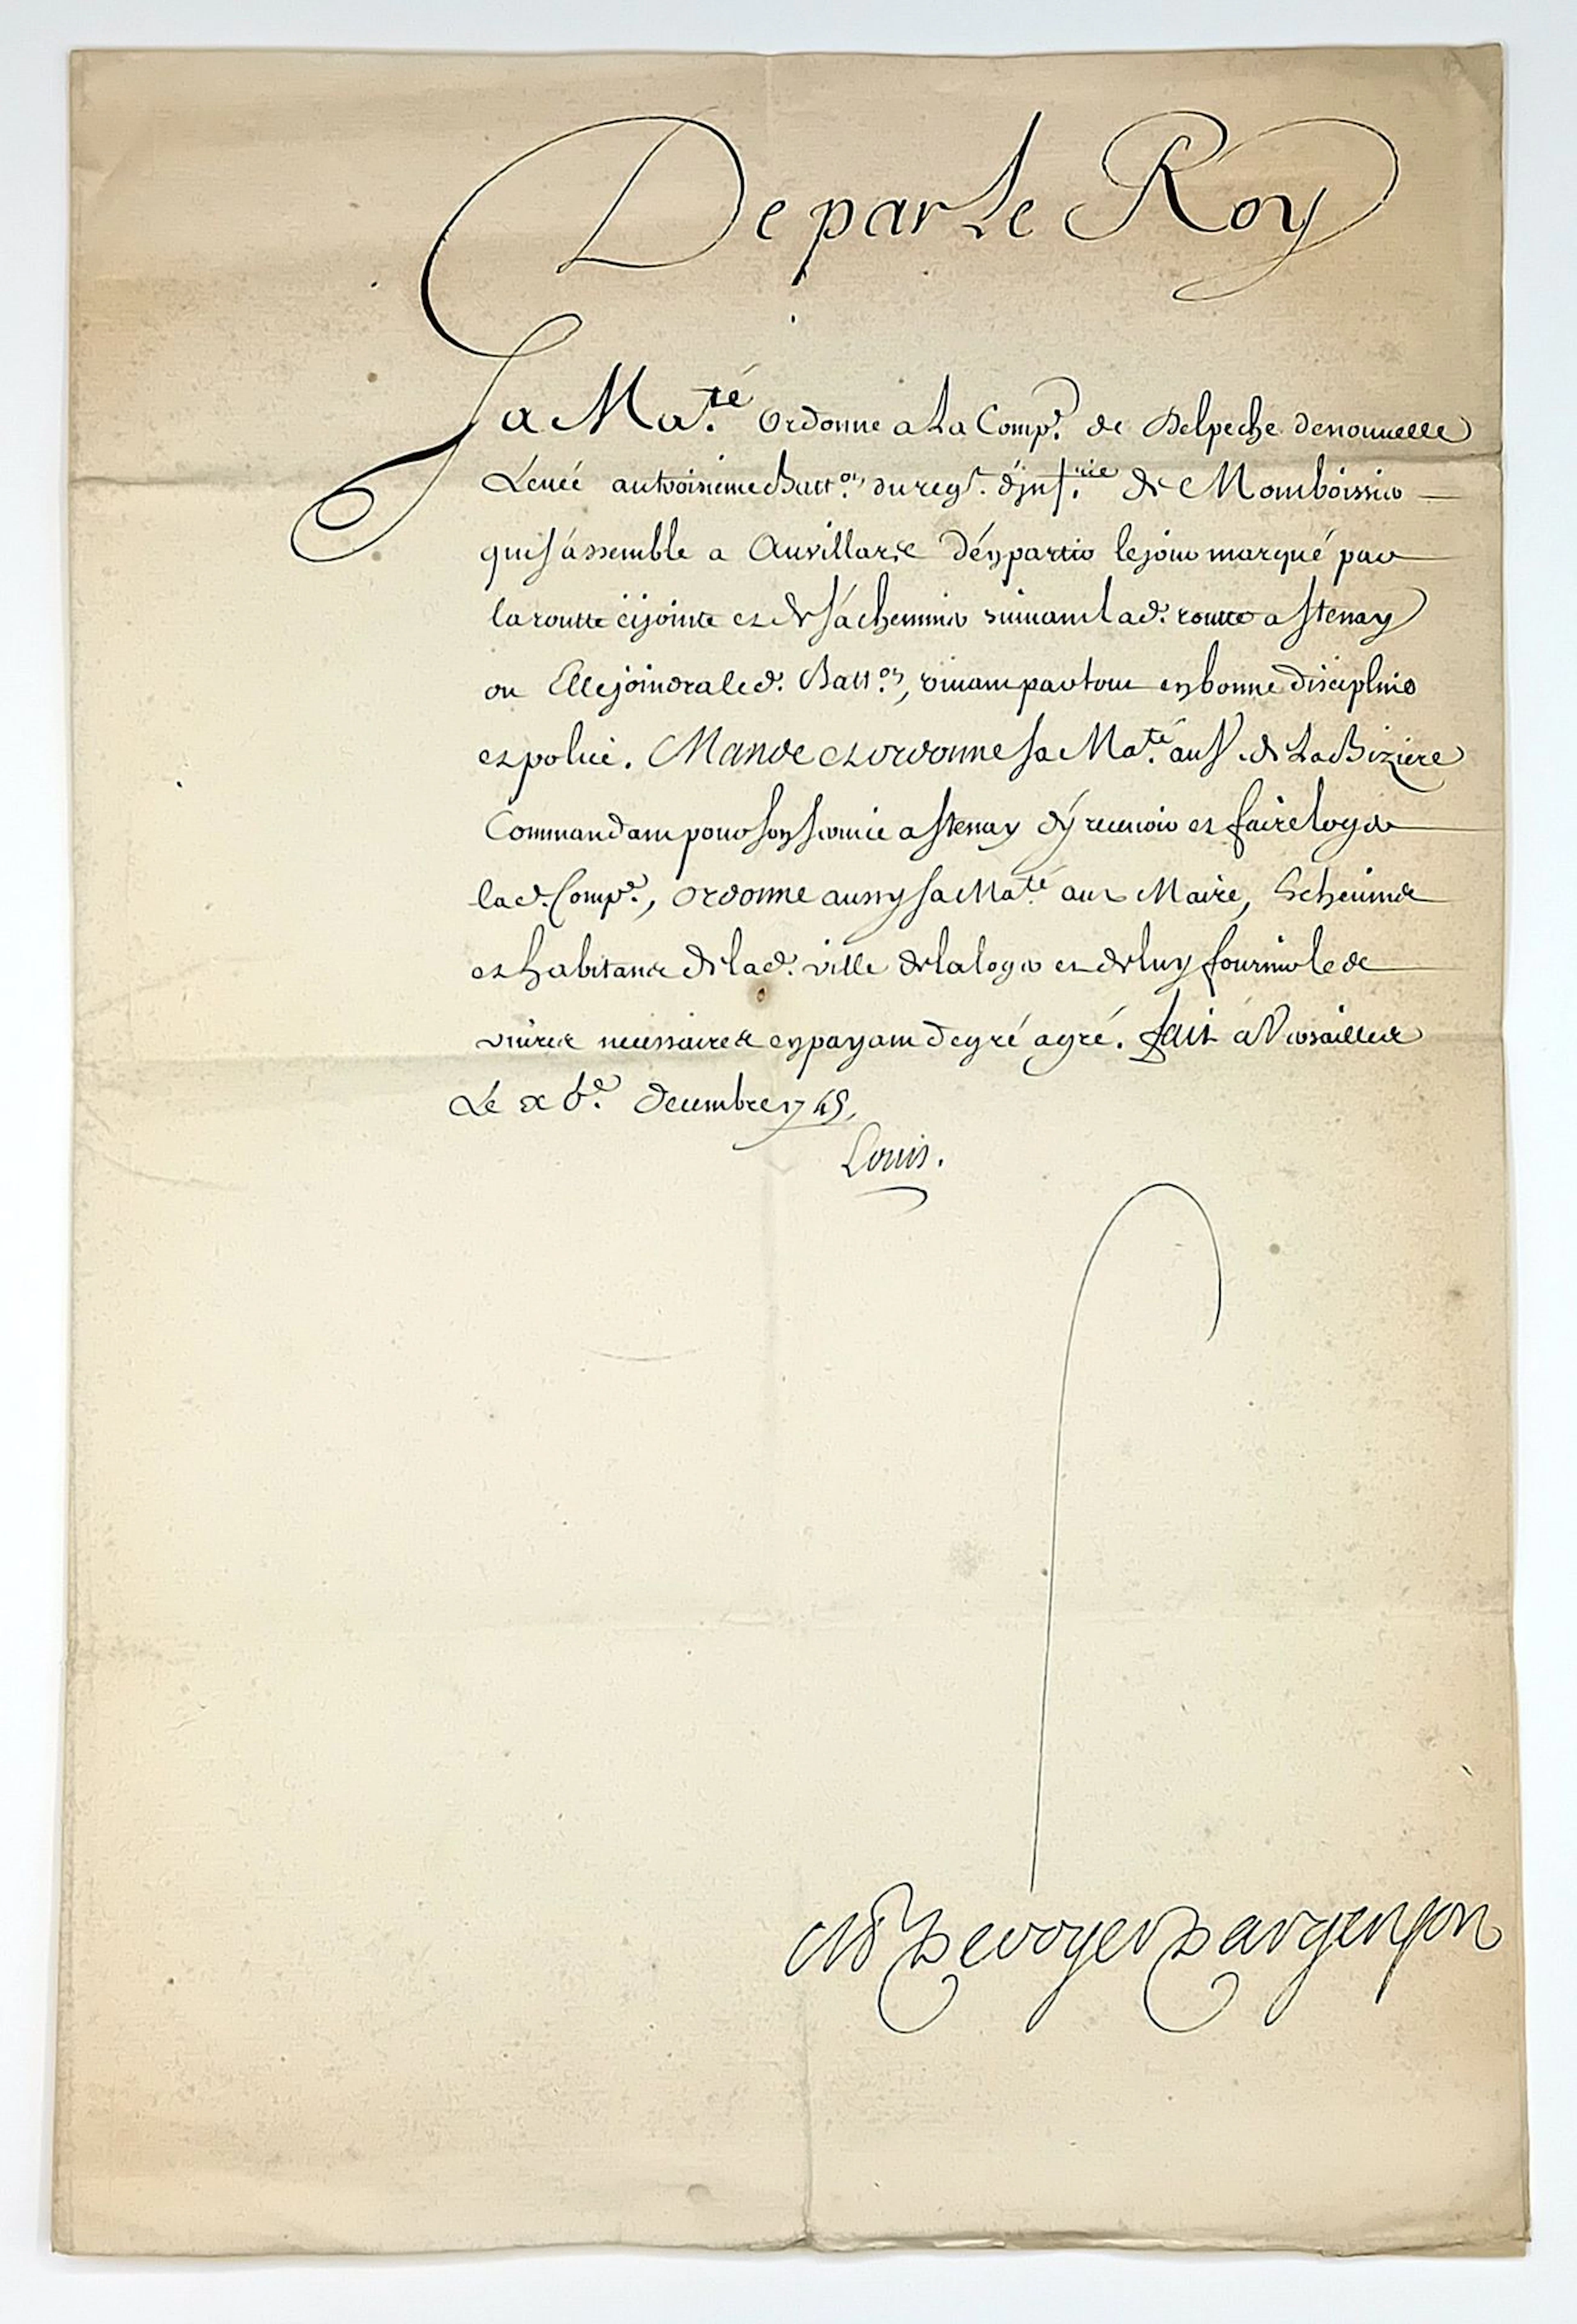 De par Le Roy
Sa Ma.té ordonne a La Comp.e de Delpeche de nouuelle
Leuée au troisieme Batt.on du reg.t d'jnf.rie de Momboissier
qui s'assemble a Auvillard d'en partir le jour marqué par
la routte cijointe et de s'acheminer suiuant lad. routte a Stenay
ou Elle joindra led. Batt.on, viuant par tout en bonne discipline
et police. Mande et ordonne sa Ma.té au S.r de La Biziere
Commandant pour son seruice a Stenay d'y receuoir et faire loger
lad. Comp.e, ordonne aussy sa Ma.té aux Maire, Escheuins
et habitans de lad. ville de la loger et de luy fournir les
viures necessaires en payant de gré a gré. fait a Versailles
Le x b.e decembre 1745,
Louis.
M P De voyer D'argenson